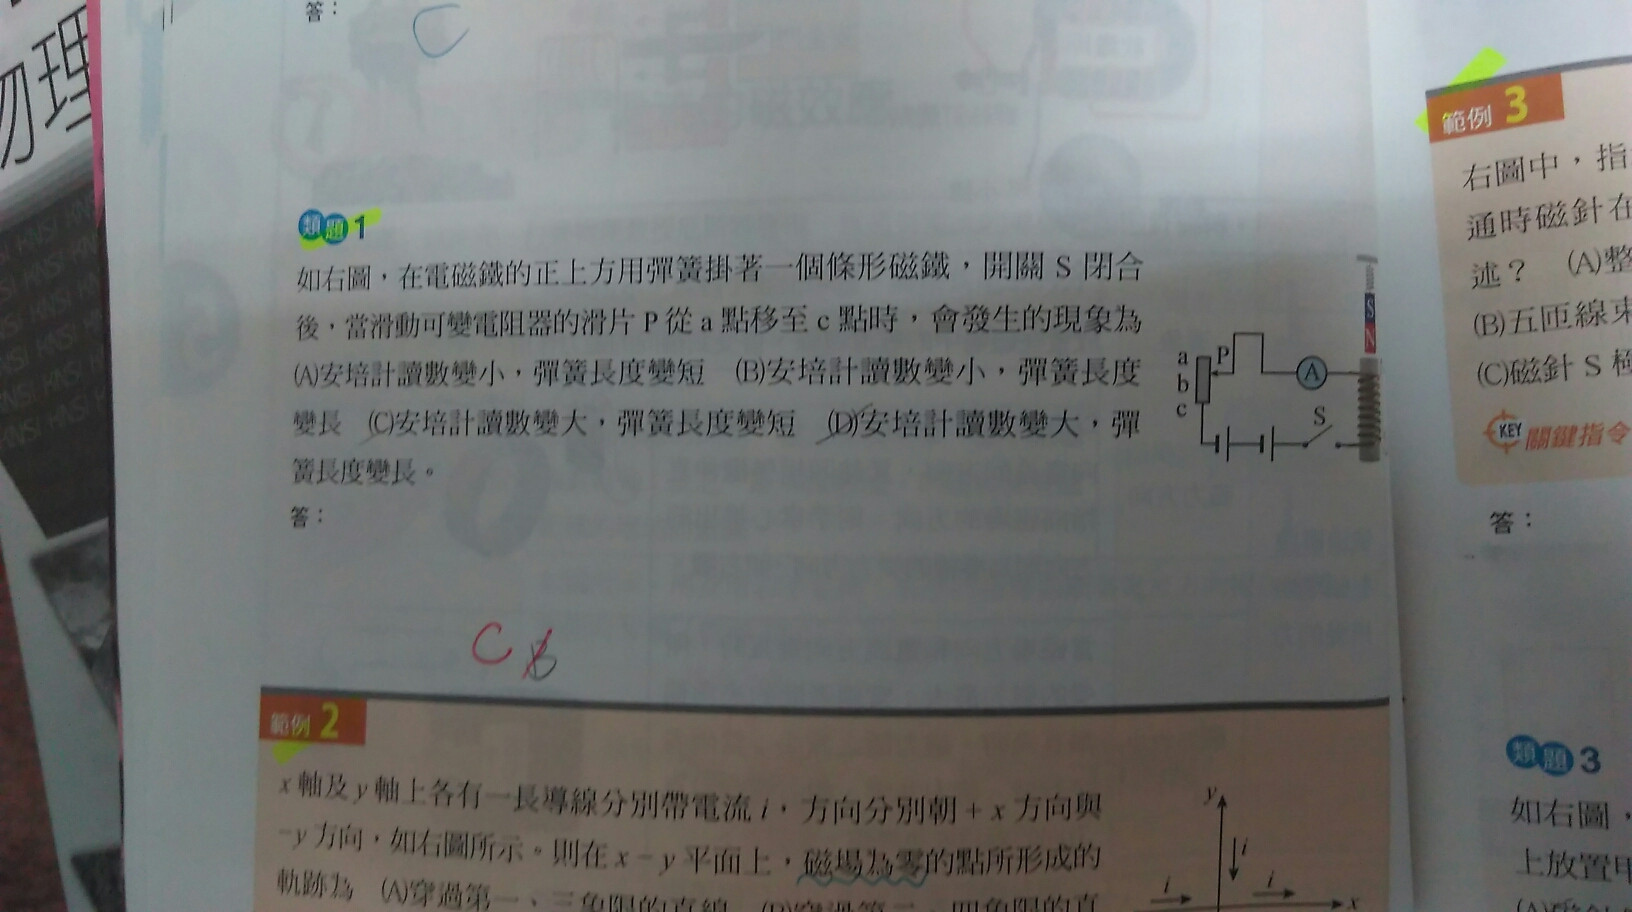 物理
答：
C
類題1
如右圖，在電磁鐵的正上方用彈簧掛著一個條形磁鐵，開關 S 閉合
後，當滑動可變電阻器的滑片 P 從 a 點移至 c 點時，會發生的現象為
(A)安培計讀數變小，彈簧長度變短　(B)安培計讀數變小，彈簧長度
變長　(C)安培計讀數變大，彈簧長度變短　(D)安培計讀數變大，彈
簧長度變長。
答：
S
N
a
P
b
c
A
S
C B
範例 2
x 軸及 y 軸上各有一長導線分別帶電流 i，方向分別朝 + x 方向與
-y 方向，如右圖所示。則在 x - y 平面上，磁場為零的點所形成的
軌跡為　(A)穿過第一、三象限的直線　(B)穿過第二、四象限的直
y
i
i
i
x
範例 3
右圖中，指
通時磁針在
述？　(A)整
(B)五匝線束
(C)磁針 S 極
KEY 關鍵指令
答：
類題3
如右圖，
上放置甲